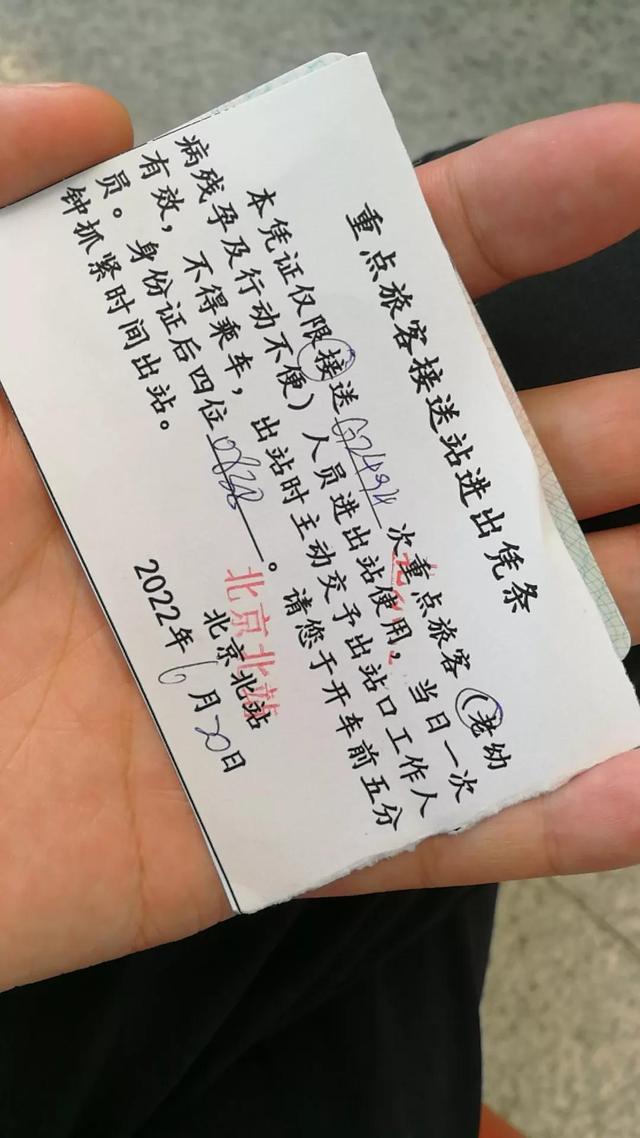 重点旅客接送站进出凭条
本凭证仅限接送G2494次重点旅客（老幼
病残孕及行动不便）人员进出站使用。当日一次
有效，不得乘车，出站时主动交予出站口工作人
员。身份证后四位。请您于开车前五分
钟抓紧时间出站。
北京北站
北京北站
2022年6月20日